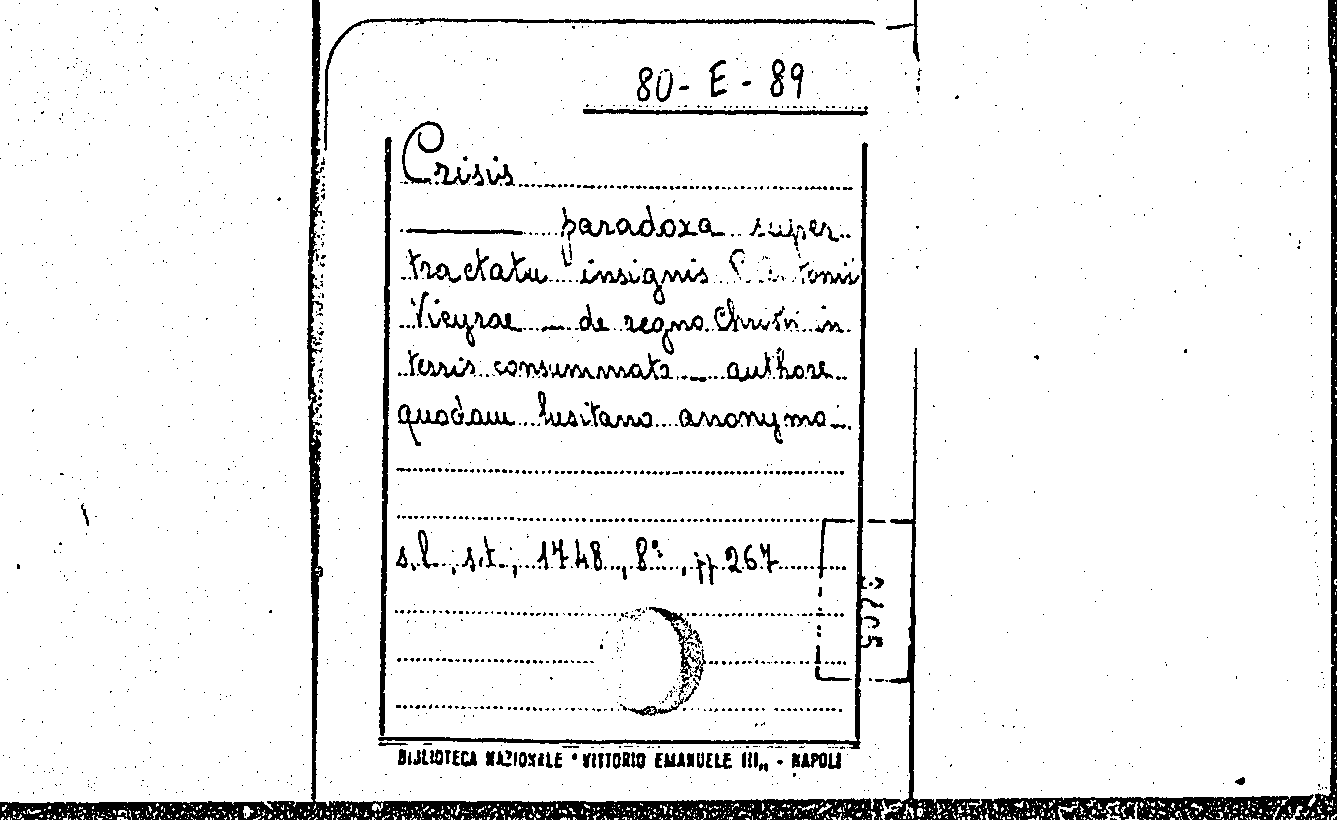 80-E-89
Crisis
paradoxa super
tractatu insignis
Vieyrae — de regno Christi in
terris consummato — authore
quodam lusitano anonymo.
s.l., s.t., 1748, 8°, pp 267
BIBLIOTECA NAZIONALE "VITTORIO EMANUELE III" - NAPOLI